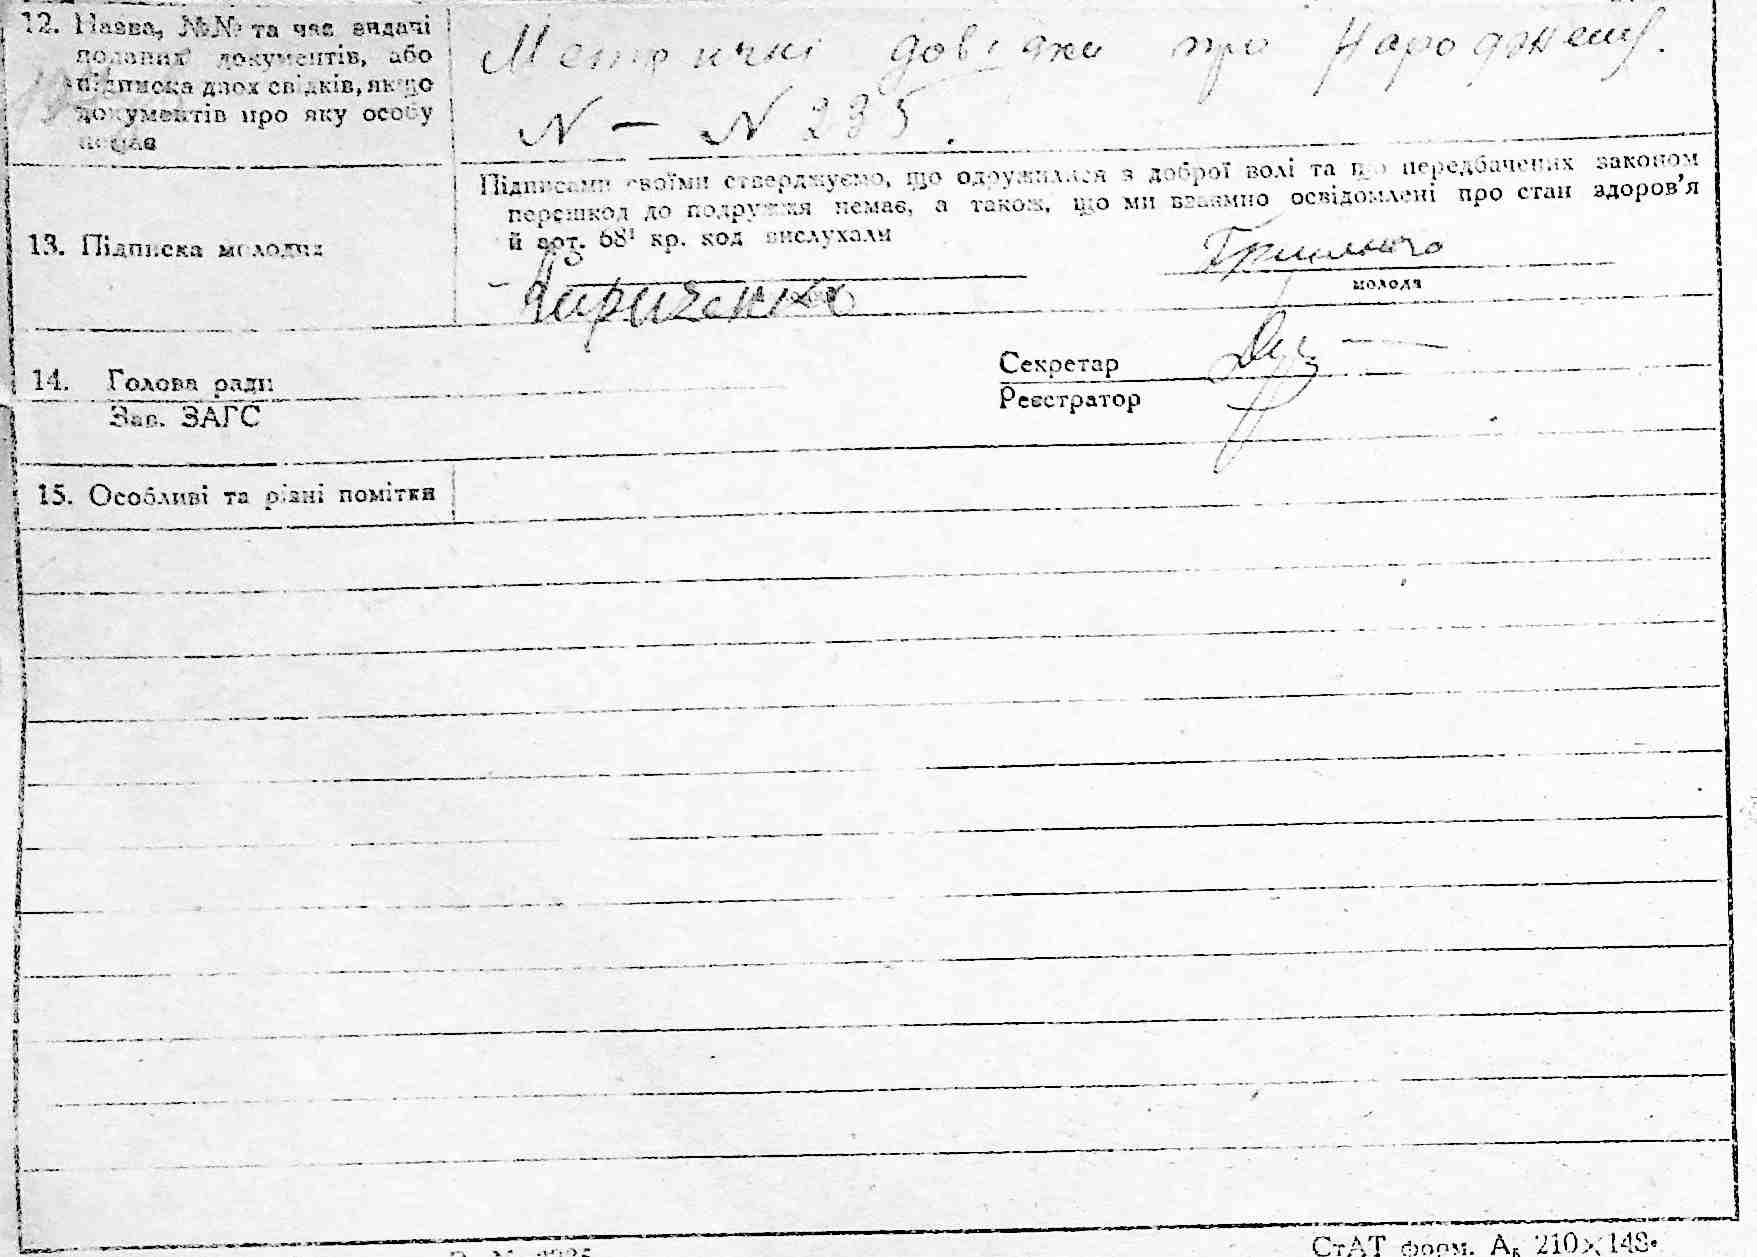 12. Назва, №№ та час видачі
поданих документів, або
підписка двох свідків, якщо
документів про яку особу
немає
Метричні довідки про народжену.
N — N 235.
13. Підписка молодих
Підписами своїми стверджуємо, що одружилися з доброї волі та що передбачених законом
перешкод до подружжя немає, а також, що ми взаємно освідомлені про стан здоров'я
й арт. 68¹ кр. код вислухали
Кириченко
молода
14. Голова ради
Зав. ЗАГС
Секретар
Реєстратор
15. Особливі та різні помітки
СтАТ форм. А₅ 210×148.